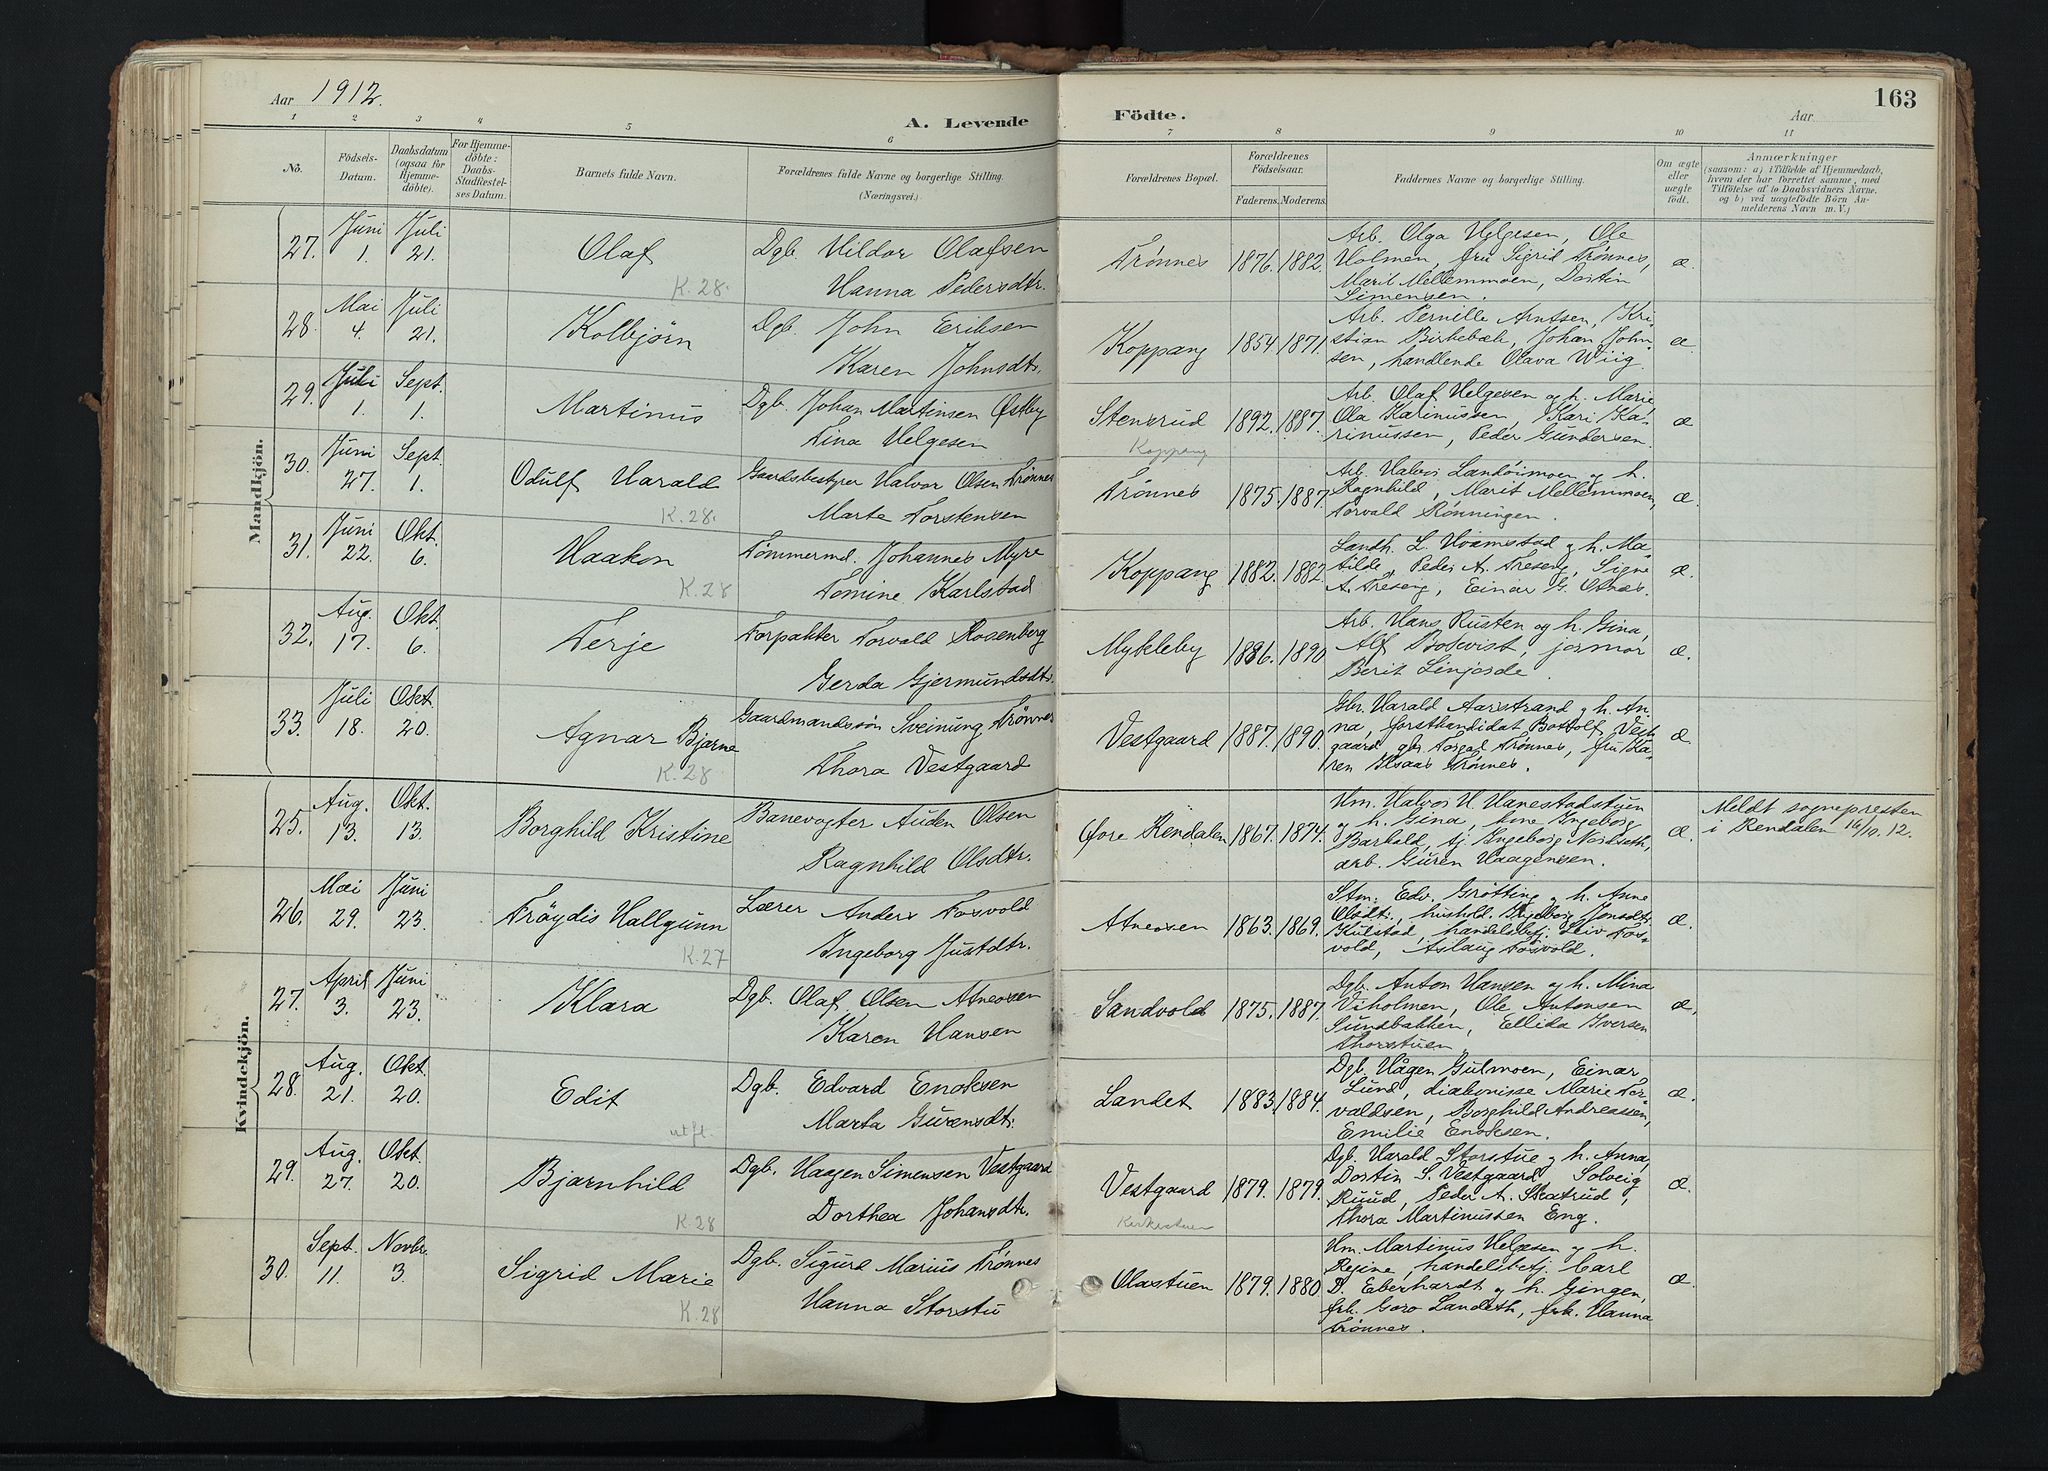 Aar 1912.
163
Aar
A. Levende Födte.
1 2 3 4 5 6 7 8 9 10 11
No.
Födsels-
Datum.
Daabsdatum
(ogsaa for
Hjemme-
döbte).
For Hjemme-
döbte:
Daabs-
Stadfæstel-
ses Datum.
Barnets fulde Navn.
Forældrenes fulde Navne og borgerlige Stilling.
(Næringsvei.)
Forældrenes Bopæl.
Forældrenes
Födselsaar.
Faderens. Moderens.
Faddernes Navne og borgerlige Stilling.
Om ægte
eller
uægte
födt.
Anmærkninger
(saasom: a) i Tilfælde af Hjemmedaab,
hvem der har forrettet samme, med
Tilföielse af to Daabsvidners Navne,
og b) ved uægtefödte Börn An-
melderens Navn m. V.)
Mandkjön.
27. Juni 1. Juli 21. Olaf K. 28.
Dgb. Hildor Olafsen
Hanna Pedersdtr.
Trønnes 1876. 1882.
Arb. Olga Helgesen, Ole
Holmen, fru Sigrid Trønnes,
Marit Mellemmoen, Dortin
Simensen.
æ.
28. Mai 4. Juli 21. Kolbjørn
Dgb. John Eriksen
Karen Johnsdtr.
Koppang 1854. 1871.
Arb. Pernille Arntsen, Kri-
stian Birkebæk, Johan John-
sen, handlende Olava Wiig.
æ
29. Juli 1. Sept. 1. Martinus
Dgb. Johan Martinsen Østby
Tina Helgesen
Stensrud 1892. 1887.
Koppang
Arb. Olaf Helgesen og h. Marie
Ola Karinussen, Kari Ka-
rinussen, Peder Gundersen.
æ
30. Juni 27. Sept. 1. Odulf Harald K. 28.
Gaardsbestyrer Halvor Olsen Trønnes
Marte Torstensen
Trønnes 1875. 1887.
Arb. Halvor Landòimoen og h.
Ragnhild, Marit Mellemmoen,
Torvald Rønningen.
æ.
31. Juni 22. Okt. 6. Haakon K. 28
Tømmermd. Johannes Myre
Tomine Karlstad
Koppang 1882. 1882
Landh. L. Hvamstad og h. Ma-
tilde, Peder A. Treseng, Signe
A. Treseng, Einar G. Otnes.
æ.
32. Aug. 17. Okt. 6. Terje
Forpakter Torvald Rosenberg
Gerda Gjermundsdtr.
Mykleby 1886. 1890
Arb. Hans Rusten og h. Gina,
Alf Bokvist, jormor
Berit Linjorde.
æ.
33. Juli 18. Okt. 20. Agnar Bjarne K. 28
Gaardmandssøn Sveinung Trønnes
Thora Vestgaard
Vestgaard 1887. 1890.
Gbr. Harald Aarstrand og h. An-
na, forstkandidat Bottolf Vest-
gaard, gbr. Torgal Trønnes, fru Ka-
ren Isaas Trønnes.
æ.
Kvindekjön.
25. Aug. 13. Okt. 13. Borghild Kristine
Banevogter Auden Olsen
Ragnhild Olsdtr.
Øvre Rendalen 1867. 1874.
Hm. Halvor H. Hanestadstuen
og h. Gina, kone Ingeborg
Barkald, tj. Ingeborg Nordseth,
arb. Guren Haagensen.
æ.
Meldt sognepresten
i Rendalen 16/10. 12.
26. Mai 29. Juni 23. Frøydis Hallgunn K. 27
Lærer Anders Fosvold
Ingeborg Justdtr.
Atneosen 1863. 1869.
Stm. Edv. Grøtting og h. Anne
Olsdtr., hushold. Ingeborg Jonsdtr.
Kulstad, handelsbetj. Liv Fos-
vold, Aslaug Fosvold.
æ.
27. April 3. Juni 23. Klara
Dgb. Olaf Olsen Atneosen
Karen Hansen
Sandvold 1875. 1887.
Dgb. Anton Hansen og h. Mina
Viholmen, Ole Antonsen
Sundbakken, Ellida Iversen
Thorstuen
æ.
28. Aug. 21. Okt. 20. Edit utfl.
Dgb. Edvard Enoksen
Marta Gurensdtr.
Landet 1883. 1884.
Dgb. Hågen Gulmoen, Einar
Lund, diakonisse Marie Tor-
valdsen, Borghild Andreassen,
Emilie Enoksen.
æ.
29. Aug. 27. Okt. 20. Bjarnhild K. 28
Dgb. Haagen Simensen Vestgaard
Dorthea Johansdtr.
Vestgaard 1879. 1879.
Kirkestuen
Dgb. Harald Storstue og h. Anna,
Dortin S. Vestgaard, Solveig
Ruud, Peder A. Skatrud,
Thora Martinussen Eng.
æ.
30. Sept. 11. Novbr. 3. Sigrid Marie K. 28
Dgb. Sigurd Marius Trønnes
Hanna Storstu
Olastuen 1879. 1880.
Hm. Martinus Helgesen og h.
Regine, handelsbetj. Carl
D. Eberhardt og h. Gingen,
frk. Goro Landeth, frk. Hanna
Trønnes.
æ.